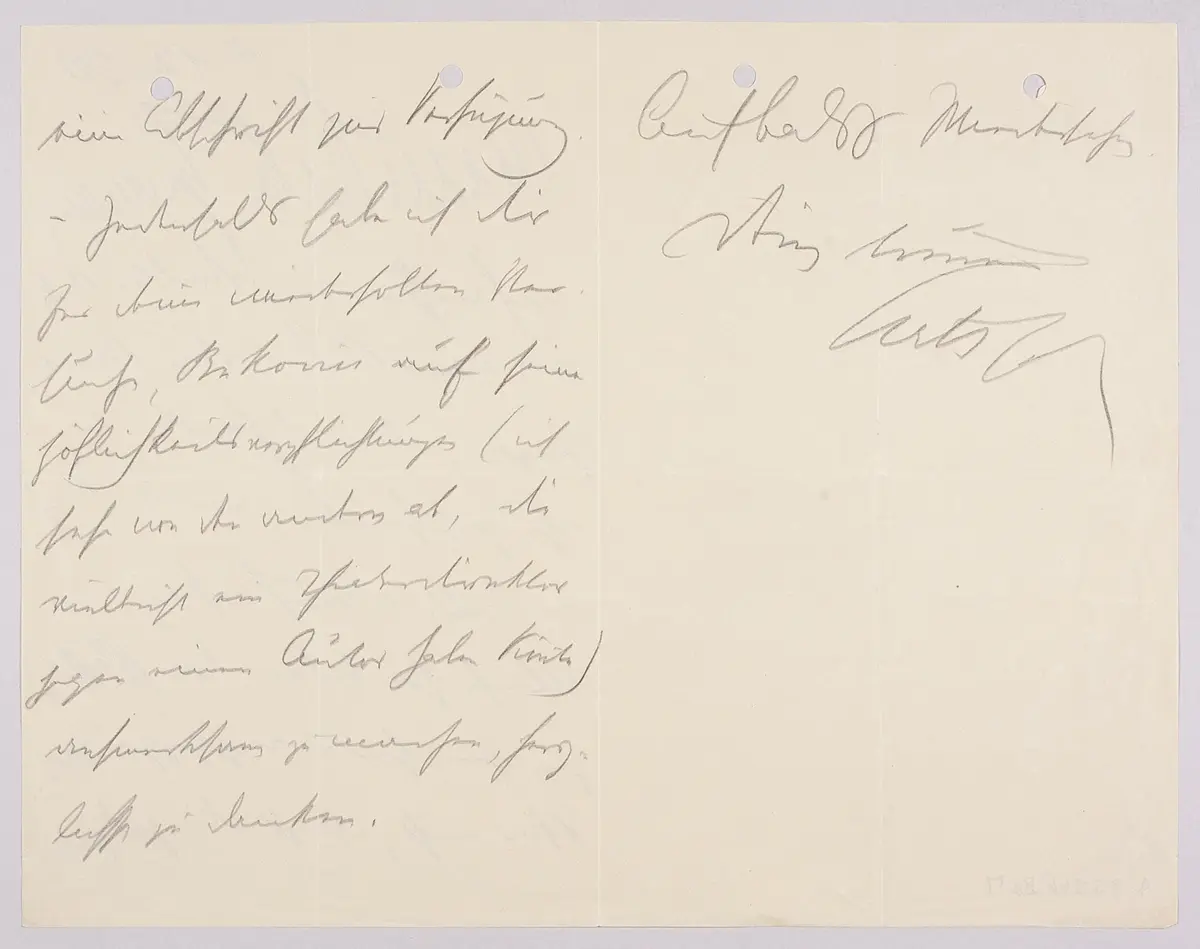 eine Abschrift zur Verfügung.
– Jedenfalls habe ich dir
für deinen wiederholten Ver-
such, Bukovics auf seine
Höflichkeitsverpflichtungen (ich
sehe von den andern ab, die
vielleicht ein Theaterdirektor
gegen einen Autor haben könnte)
aufmerksam zu machen, herz-
lichst zu danken.
Auf baldges Wiedersehen.
Dein treuer
Arthur